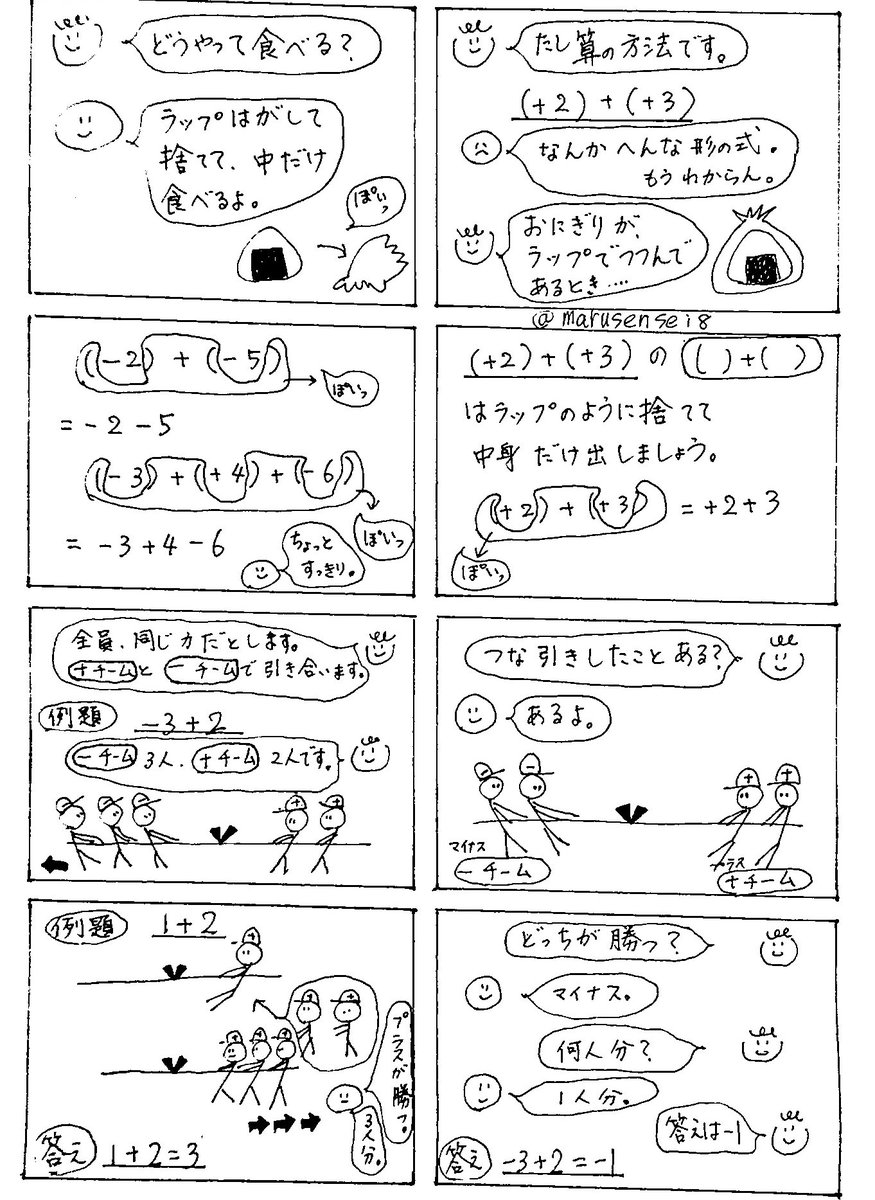 たし算の方法です。
(+2)+(+3)
なんかへんな形の式。
もうわからん。
おにぎりが、
ラップでつつんで
あるとき…
どうやって食べる?
ラップはがして
捨てて、中だけ
食べるよ。
ぽいっ
@marusensei8
(+2)+(+3)の( )+( )
はラップのように捨てて
中身だけ出しましょう。
(+2)+(+3)=+2+3
ぽいっ
(-2)+(-5)
ぽいっ
=-2-5
(-3)+(+4)+(-6)
ぽいっ
=-3+4-6
ちょっと
すっきり。
つな引きしたことある?
あるよ。
- -
+ +
マイナス
-チーム
プラス
+チーム
全員、同じ力だとします。
+チームと-チームで引き合います。
例題 -3+2
-チーム3人、+チーム2人です。
- - -
+ +
どっちが勝つ?
マイナス。
何人分?
1人分。
答えは-1
答え -3+2=-1
例題 1+2
+
+ +
+ + +
プラスが勝つ。
3人分。
答え 1+2=3